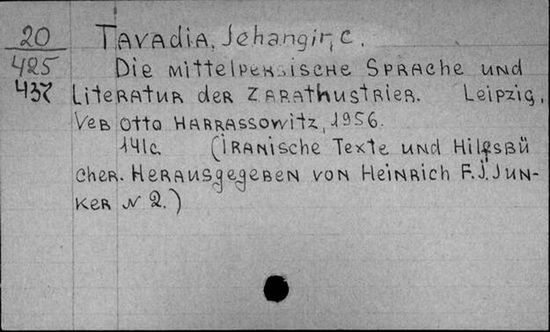 20 Tavadia, Jehangir, C.
425 Die mittelpersische Sprache und
437 Literatur der Zarathustrier. Leipzig,
Veb Otto Harrassowitz, 1956.
141c. (Iranische Texte und Hilfsbü
cher. Herausgegeben von Heinrich F. J. Jun-
ker N 2.)